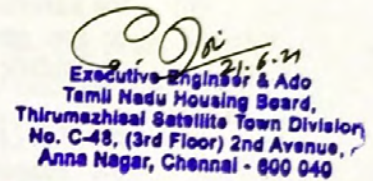 21.6.21
Executive Engineer & Ado
Tamil Nadu Housing Board,
Thirumazhisai Satellite Town Division
No. C-48, (3rd Floor) 2nd Avenue,
Anna Nagar, Chennai - 600 040